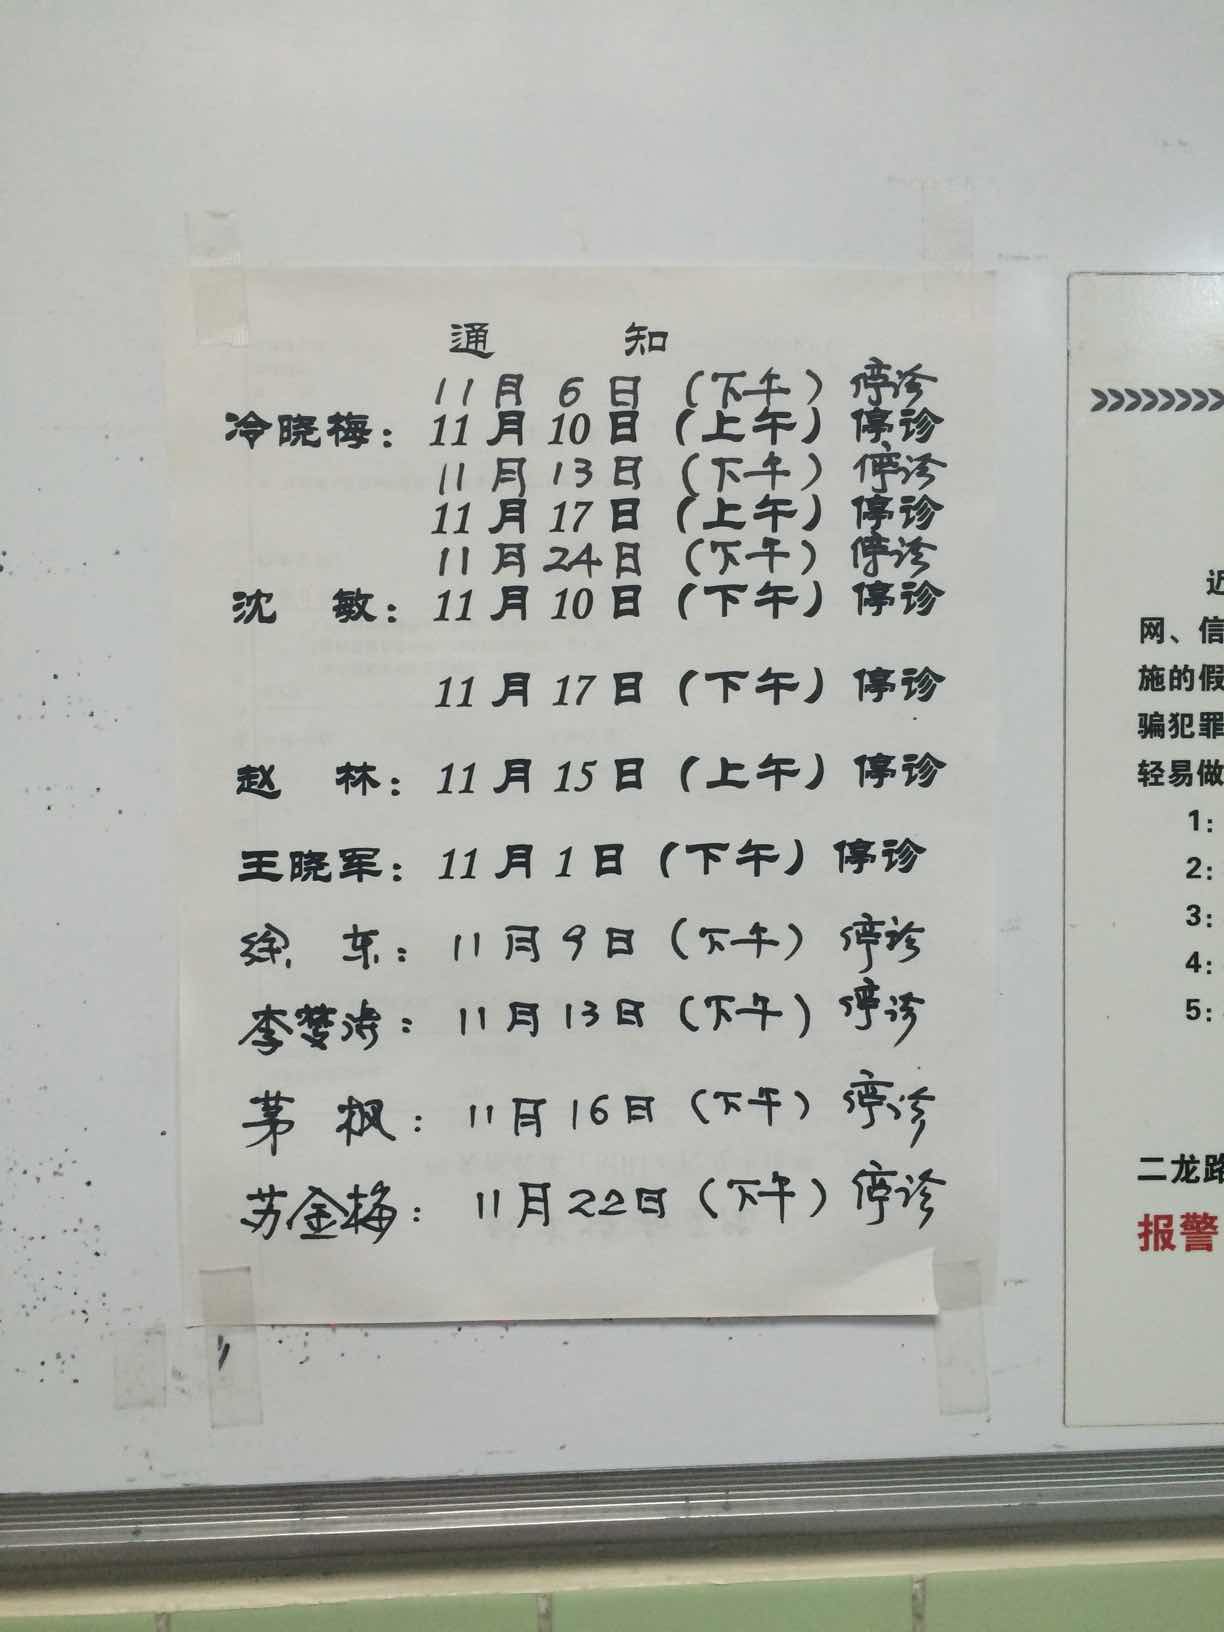 通 知
11月6日（下午）停诊
冷晓梅：11月10日（上午）停诊
11月13日（下午）停诊
11月17日（上午）停诊
11月24日（下午）停诊
沈 敏：11月10日（下午）停诊
11月17日（下午）停诊
赵 林：11月15日（上午）停诊
王晓军：11月1日（下午）停诊
徐 东：11月9日（下午）停诊
李梦涛：11月13日（下午）停诊
茅 枫：11月16日（下午）停诊
苏金梅：11月22日（下午）停诊
近
网、信
施的假
骗犯罪
轻易做
1:
2:
3:
4:
5:
二龙路
报警